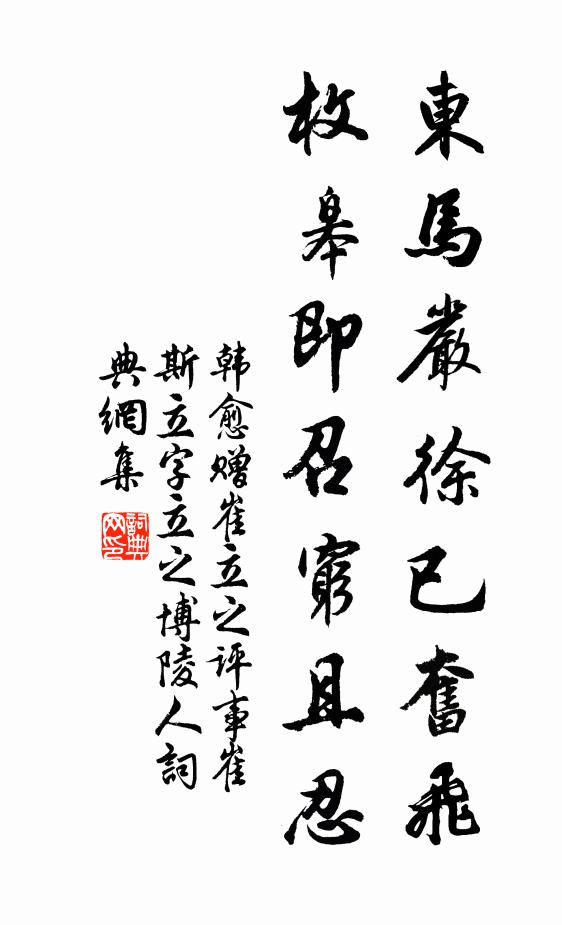 東馬嚴徐已奮飛
枚皋即召窮且忍
韩愈赠崔立之评事崔
斯立字立之博陵人詞
典網集
詞典
网印